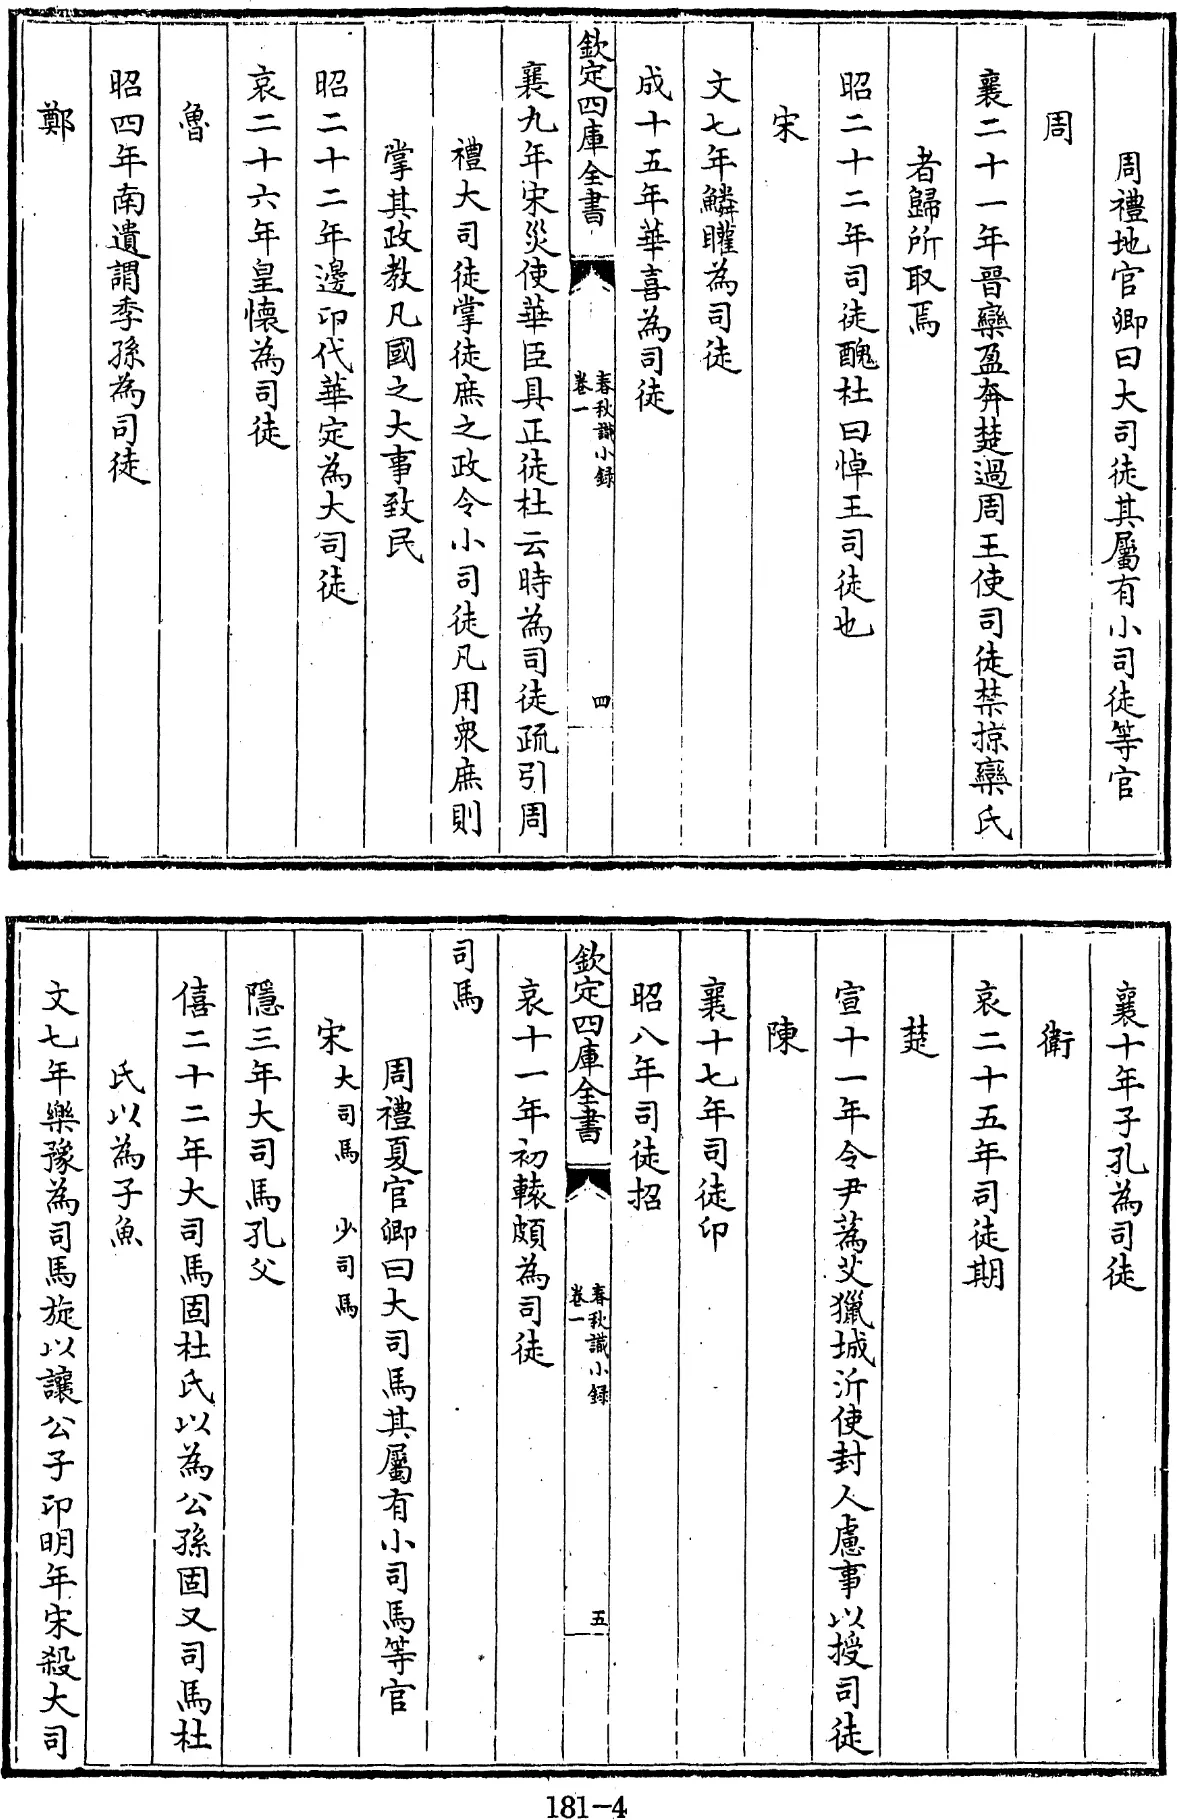 周禮地官卿曰大司徒其屬有小司徒等官
周
襄二十一年晉欒盈奔楚過周王使司徒禁掠欒氏
者歸所取焉
昭二十二年司徒醜杜曰悼王司徒也
宋
文七年鱗矔為司徒
成十五年華喜為司徒
欽定四庫全書
春秋識小録
卷一
四
襄九年宋災使華臣具正徒杜云時為司徒疏引周
禮大司徒掌徒庶之政令小司徒凡用衆庶則
掌其政教凡國之大事致民
昭二十二年邊卬代華定為大司徒
哀二十六年皇懐為司徒
魯
昭四年南遺謂季孫為司徒
鄭
襄十年子孔為司徒
衛
哀二十五年司徒期
楚
宣十一年令尹蒍艾獵城沂使封人慮事以授司徒
陳
襄十七年司徒卬
昭八年司徒招
欽定四庫全書
春秋識小録
卷一
五
哀十一年初轅頗為司徒
司馬
周禮夏官卿曰大司馬其屬有小司馬等官
宋 大司馬 少司馬
隱三年大司馬孔父
僖二十二年大司馬固杜氏以為公孫固又司馬杜
氏以為子魚
文七年樂豫為司馬旋以讓公子卬明年宋殺大司
181-4